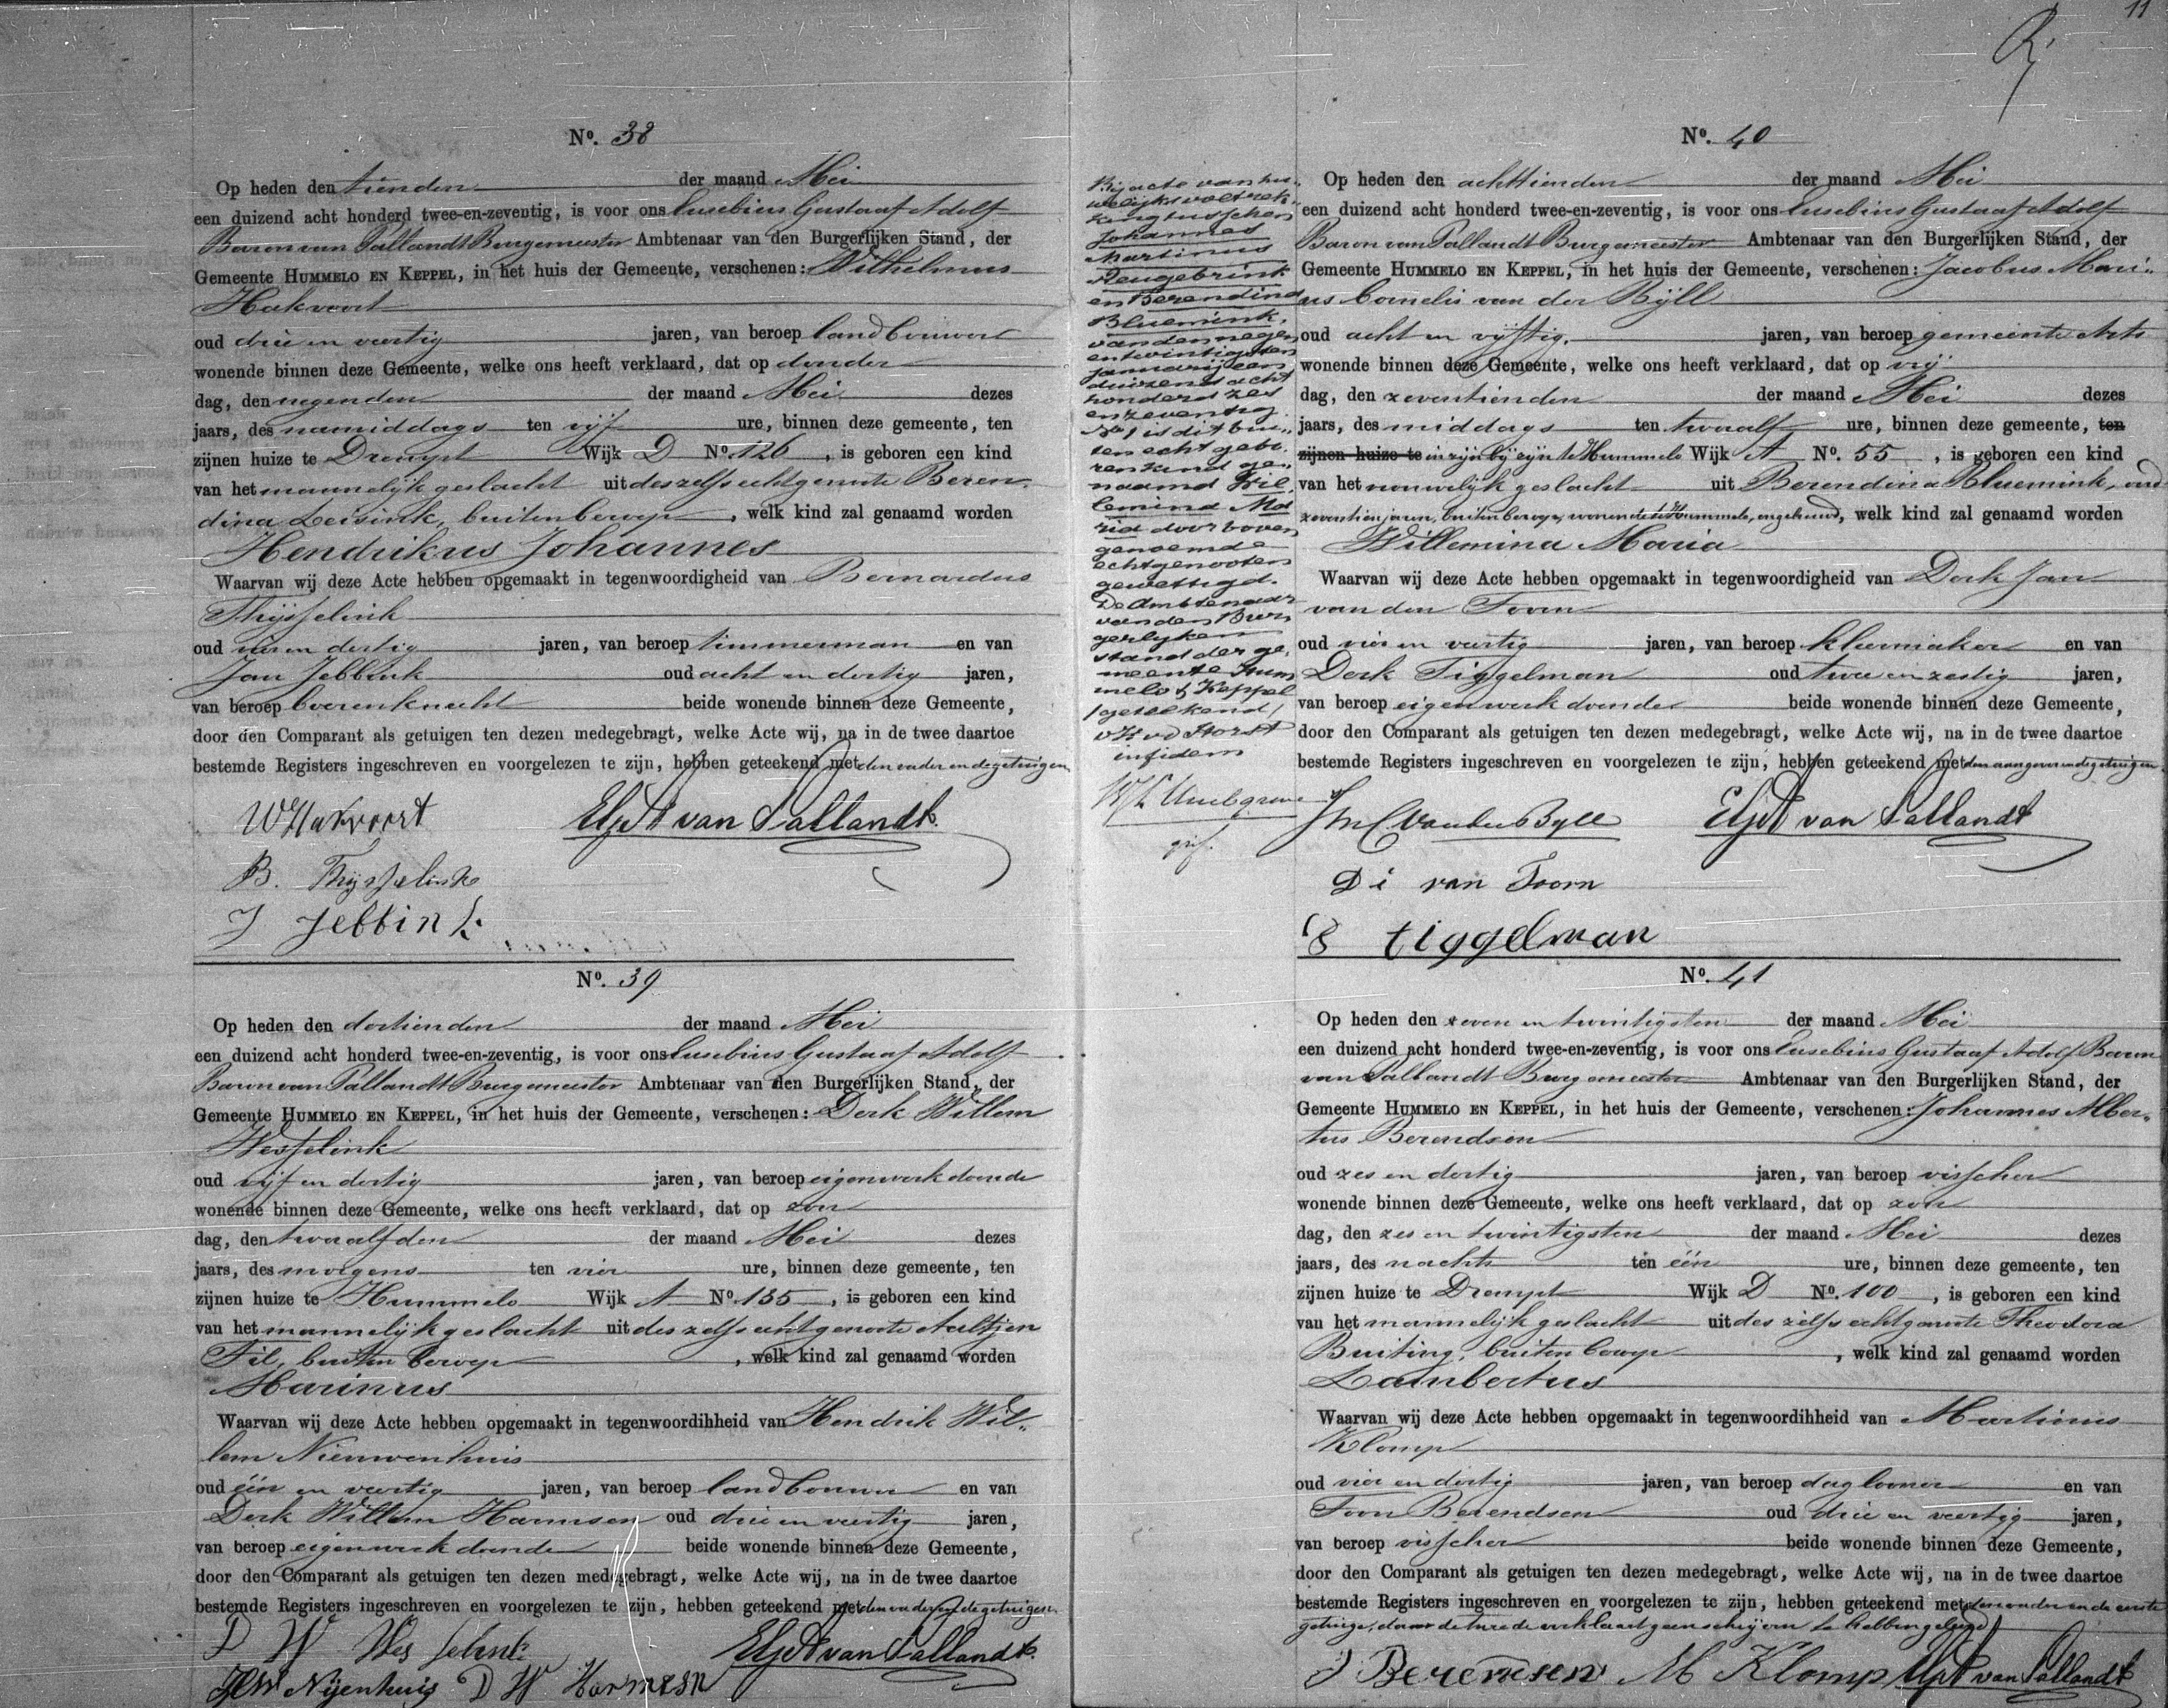 11
Nº. 38
Op heden den tienden der maand Mei
een duizend acht honderd twee-en-zeventig, is voor ons Eusebius Gustaaf Adolf
Baron van Pallandt Burgemeester Ambtenaar van den Burgerlijken Stand, der
Gemeente HUMMELO EN KEPPEL, in het huis der Gemeente, verschenen: Wilhelmus
Hakvoort
oud drie en veertig jaren, van beroep landbouwer
wonende binnen deze Gemeente, welke ons heeft verklaard, dat op donder
dag, den negenden der maand Mei dezes
jaars, des namiddags ten vijf ure, binnen deze gemeente, ten
zijnen huize te Drempt Wijk D Nº. 126, is geboren een kind
van het mannelijk geslacht uit deszelfs echtgenoote Beren-
dina Leisink, buiten beroep, welk kind zal genaamd worden
Hendrikus Johannes
Waarvan wij deze Acte hebben opgemaakt in tegenwoordigheid van Bernardus
Thijsselink
oud vier en dertig jaren, van beroep timmerman en van
Jan Jebbink oud acht en dertig jaren,
van beroep boerenknecht beide wonende binnen deze Gemeente,
door den Comparant als getuigen ten dezen medegebragt, welke Acte wij, na in de twee daartoe
bestemde Registers ingeschreven en voorgelezen te zijn, hebben geteekend met den vader en de getuigen
WHakvoort EGA van Pallandt.
B. Thijsselink
J Jebbink
Nº. 39
Op heden den dertienden der maand Mei
een duizend acht honderd twee-en-zeventig, is voor ons Eusebius Gustaaf Adolf
Baron van Pallandt Burgemeester Ambtenaar van den Burgerlijken Stand, der
Gemeente HUMMELO EN KEPPEL, in het huis der Gemeente, verschenen: Derk Willem
Wesselink
oud vijf en dertig jaren, van beroep eigenwerk doende
wonende binnen deze Gemeente, welke ons heeft verklaard, dat op zon
dag, den twaalfden der maand Mei dezes
jaars, des morgens ten vier ure, binnen deze gemeente, ten
zijnen huize te Hummelo Wijk A Nº. 135, is geboren een kind
van het mannelijk geslacht uit des zelfs echtgenoote Aaltjen
Fil, buiten beroep, welk kind zal genaamd worden
Marinus
Waarvan wij deze Acte hebben opgemaakt in tegenwoordihheid van Hendrik Wil-
lem Nieuwenhuis
oud één en veertig jaren, van beroep landbouwer en van
Derk Willem Harmsen oud drie en veertig jaren,
van beroep eigenwerk doende beide wonende binnen deze Gemeente,
door den Comparant als getuigen ten dezen medegebragt, welke Acte wij, na in de twee daartoe
bestemde Registers ingeschreven en voorgelezen te zijn, hebben geteekend met den vader en de getuigen.
D W Wesselink EGA van Pallandt.
HW Nijenhuis D W Harmsen
Bij acte van hu-
welijks voltrek-
king tusschen
Johannes
Martinus
Reugebrink
en Berendina
Bluemink,
van den negen
entwintigsten
januarij een
duizend acht
honderd zes
en zeventig
No 1 is dit bui-
ten echt gebo-
ren kind ge-
naamd Wil-
lemina Ma
ria door boven
genoemde
echtgenooten
gewettigd.
De Ambtenaar
van den Bur-
gerlijken
stand der ge-
meente Hum
melo & Keppel
/geteekend/
v H vd Horst
in fidem
grif.
Nº. 40
Op heden den achttienden der maand Mei
een duizend acht honderd twee-en-zeventig, is voor ons Eusebius Gustaaf Adolf
Baron van Pallandt Burgemeester Ambtenaar van den Burgerlijken Stand, der
Gemeente HUMMELO EN KEPPEL, in het huis der Gemeente, verschenen: Jacobus Mari-
us Cornelis van der Bijll
oud acht en vijftig, jaren, van beroep gemeente Arts
wonende binnen deze Gemeente, welke ons heeft verklaard, dat op vrij
dag, den zeventienden der maand Mei dezes
jaars, des middags ten twaalf ure, binnen deze gemeente, ten
zijnen huize te in zijn bijzijn te Hummelo Wijk A Nº. 55, is geboren een kind
van het vrouwelijk geslacht uit Berendina Bluemink, oud
zeventien jaren, buiten beroep, wonende te Hummelo, ongehuwd, welk kind zal genaamd worden
Willemina Maria
Waarvan wij deze Acte hebben opgemaakt in tegenwoordigheid van Derk Jan
van den Toorn
oud vier en veertig jaren, van beroep kleermaker en van
Derk Tiggelman oud twee en zestig jaren,
van beroep eigenwerk doende beide wonende binnen deze Gemeente,
door den Comparant als getuigen ten dezen medegebragt, welke Acte wij, na in de twee daartoe
bestemde Registers ingeschreven en voorgelezen te zijn, hebben geteekend met den aangever en de getuigen
JMC van der Byll EGA van Pallandt
D i van Toorn
tiggelman
Nº. 41
Op heden den zeven en twintigsten der maand Mei
een duizend acht honderd twee-en-zeventig, is voor ons Eusebius Gustaaf Adolf Baron
van Pallandt Burgemeester Ambtenaar van den Burgerlijken Stand, der
Gemeente HUMMELO EN KEPPEL, in het huis der Gemeente, verschenen: Johannes Alber-
tus Berendsen
oud zes en dertig jaren, van beroep visscher
wonende binnen deze Gemeente, welke ons heeft verklaard, dat op zon
dag, den zes en twintigsten der maand Mei dezes
jaars, des nachts ten één ure, binnen deze gemeente, ten
zijnen huize te Drempt Wijk D Nº. 100, is geboren een kind
van het mannelijk geslacht uit des zelfs echtgenoote Theodora
Buiting, buiten beroep, welk kind zal genaamd worden
Lambertus
Waarvan wij deze Acte hebben opgemaakt in tegenwoordihheid van Martinus
Klomp
oud vier en dertig jaren, van beroep daglooner en van
Toon Berendsen oud drie en veertig jaren,
van beroep visscher beide wonende binnen deze Gemeente,
door den Comparant als getuigen ten dezen medegebragt, welke Acte wij, na in de twee daartoe
bestemde Registers ingeschreven en voorgelezen te zijn, hebben geteekend met den vader en de eerste
getuige, daar de tweede verklaart geen schrijven te hebben geleerd
J Berensen M Klomp EGA van Pallandt